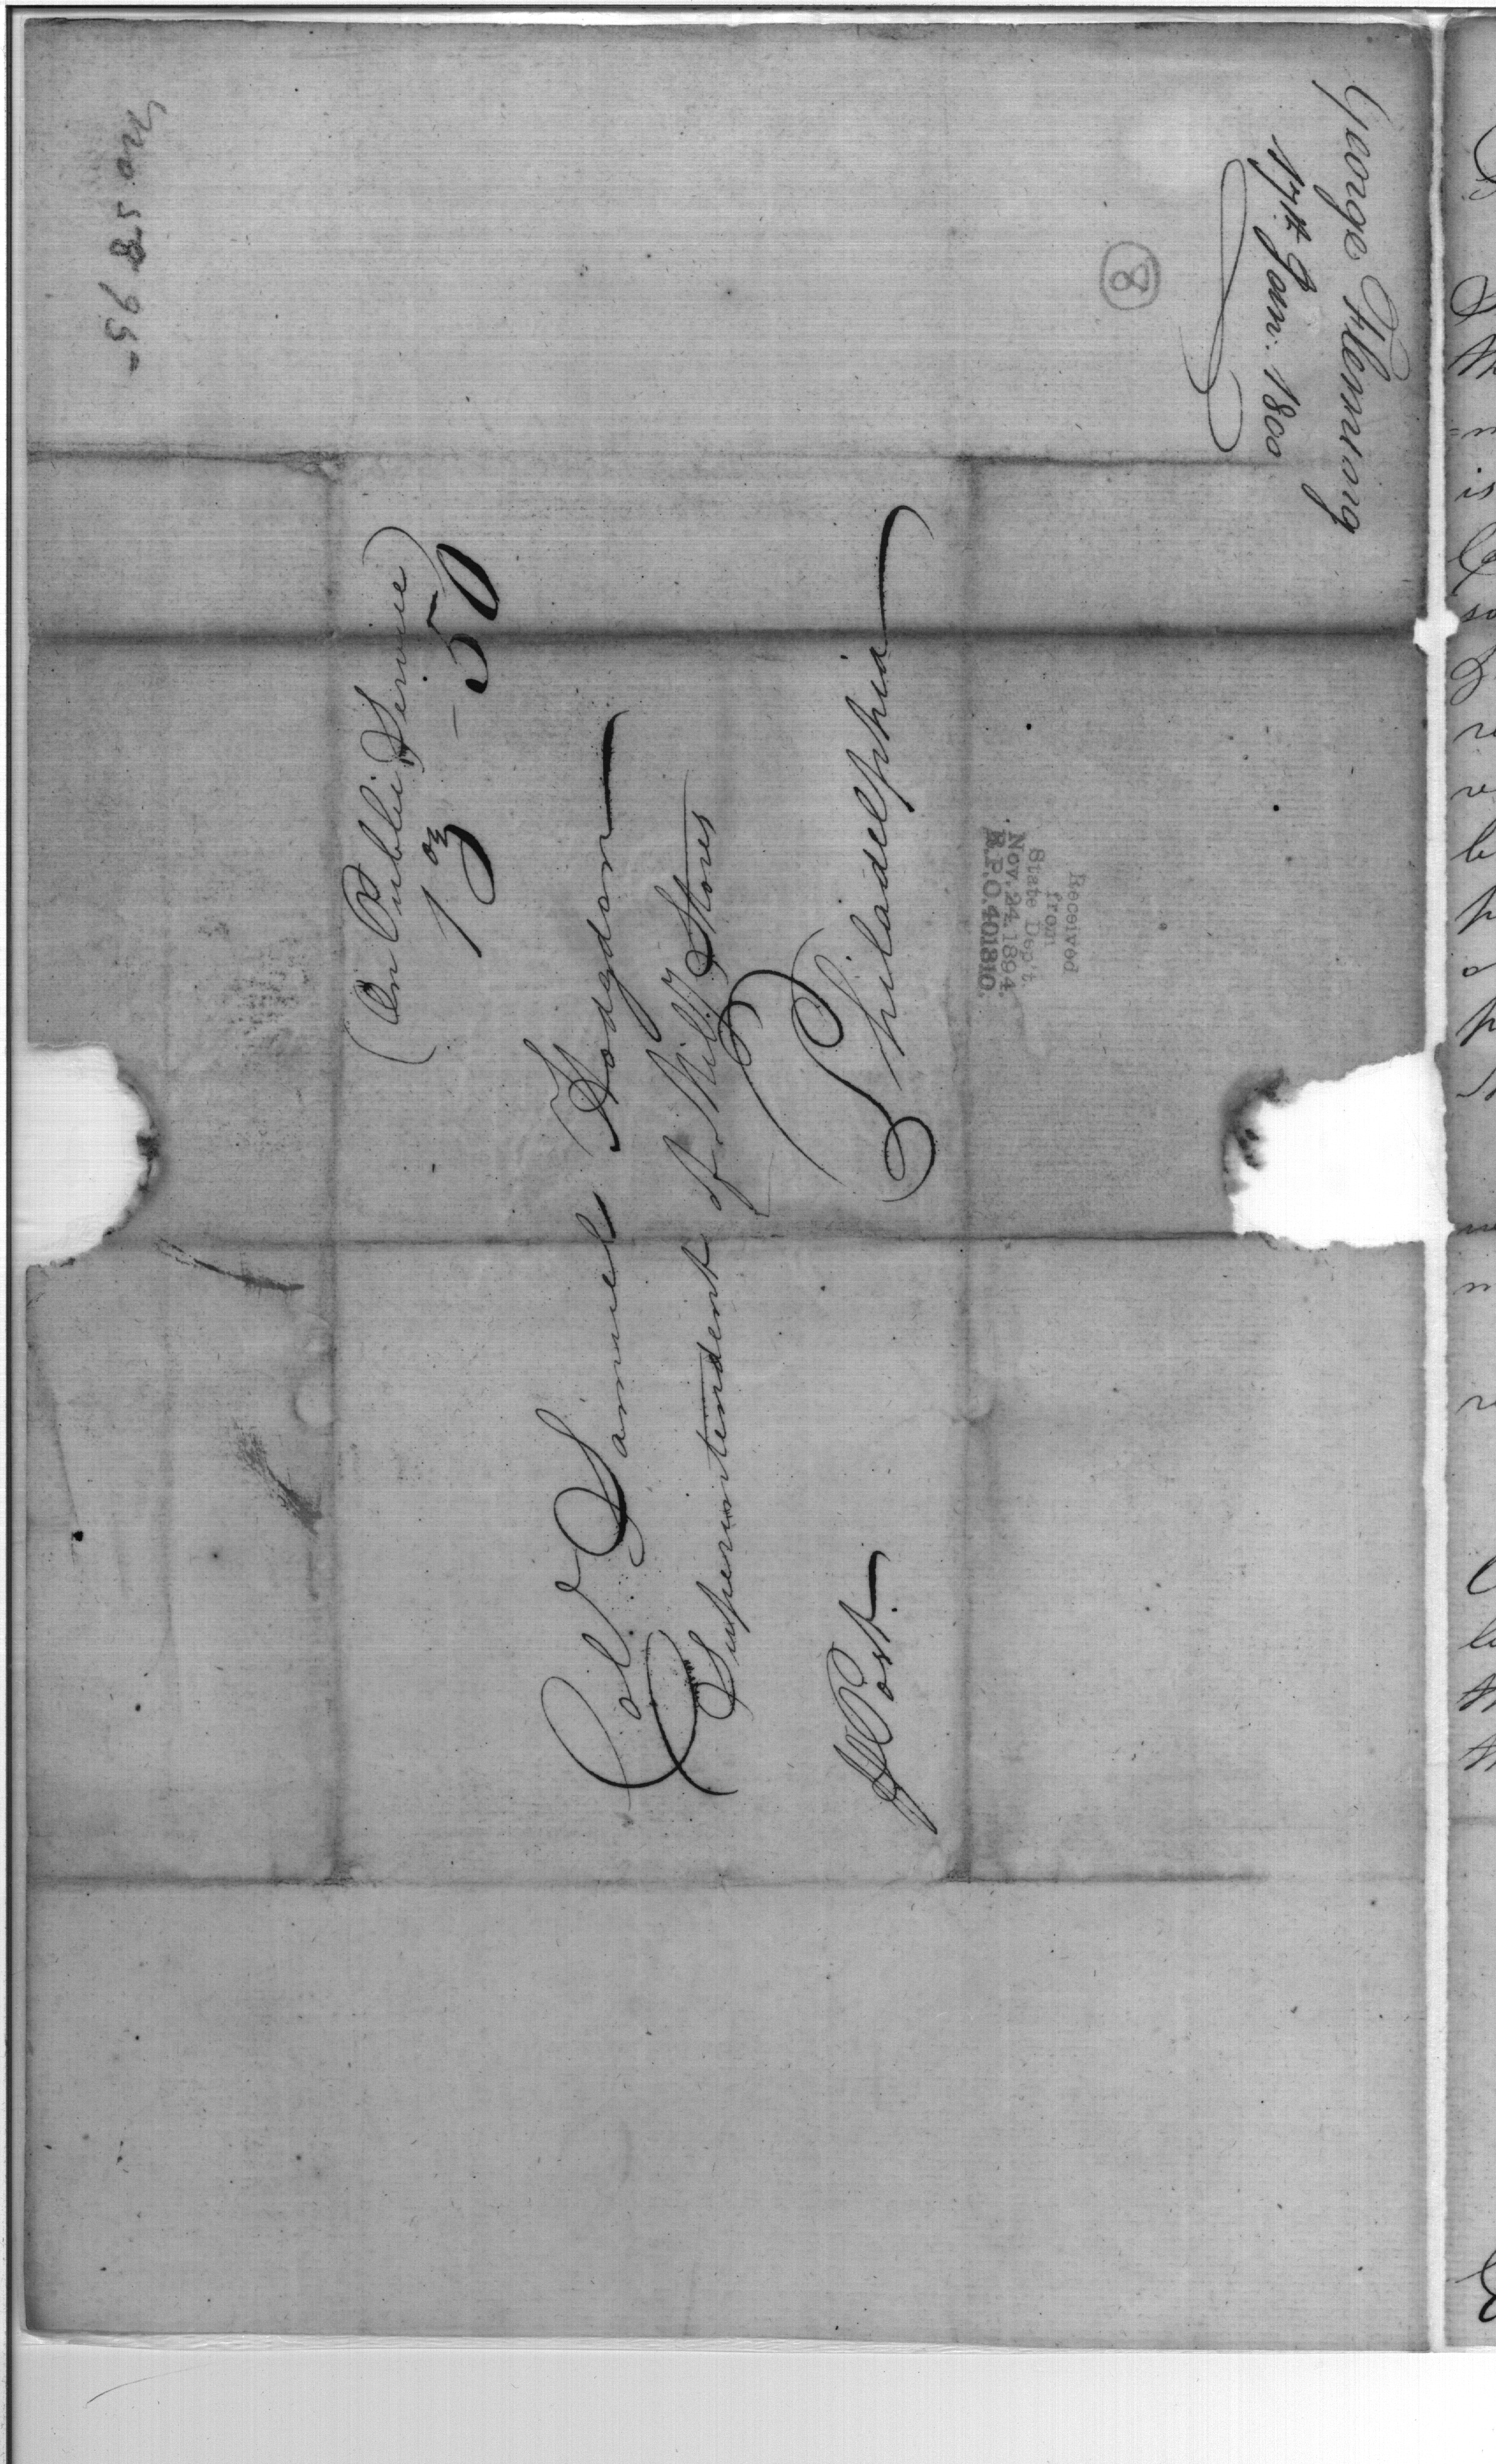 George Fleming
17th Jany. 1800
8
(On Public Service)
1 oz - 50
Col. Samuel Hodgdon
Superintendent of Mily. Stores
Philadelphia
Post.
Received
from
State Dep't.
Nov. 24, 1894.
R.P.O. 401810.